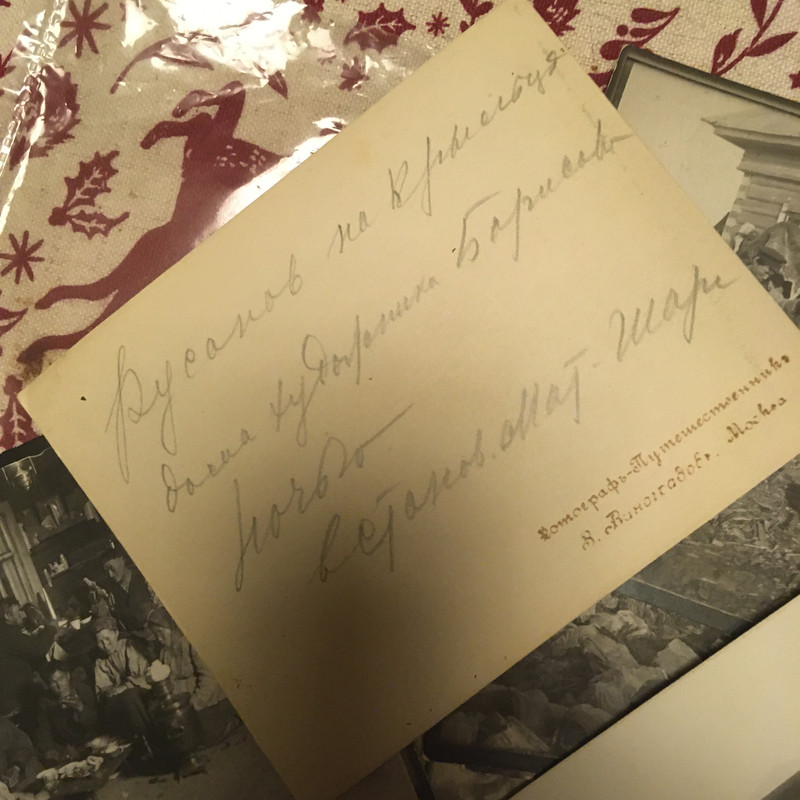 Русанов на крыльце
дома художника Борисова
ночью
в станов. Мат-Шаре
Фотографъ-Путешественникъ
В. Виноградовъ. Москва